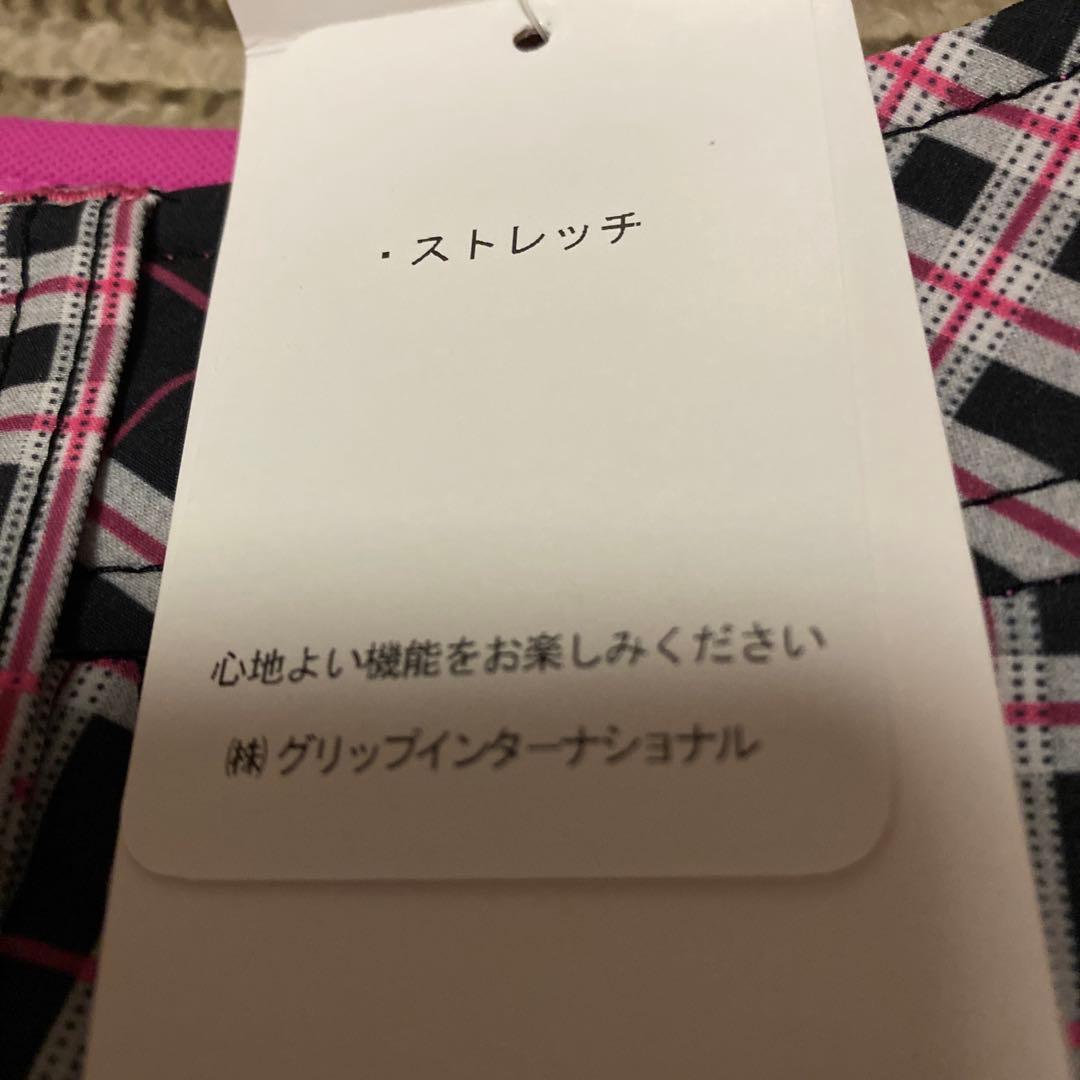 ・ストレッチ
心地よい機能をお楽しみください
㈱グリップインターナショナル